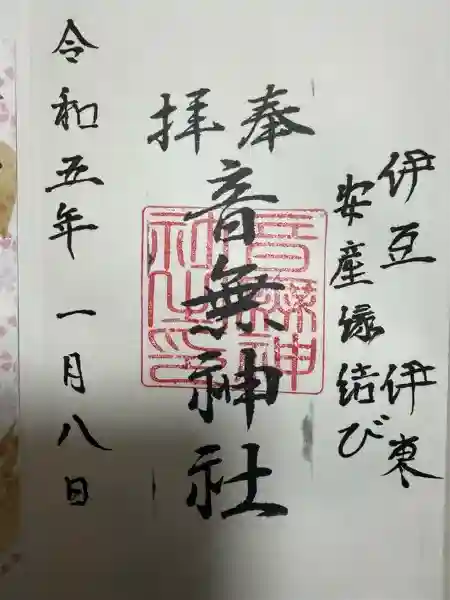 伊豆 伊東
安産縁結び
奉拝
音無神社
音無神社之印
令和五年 一月八日